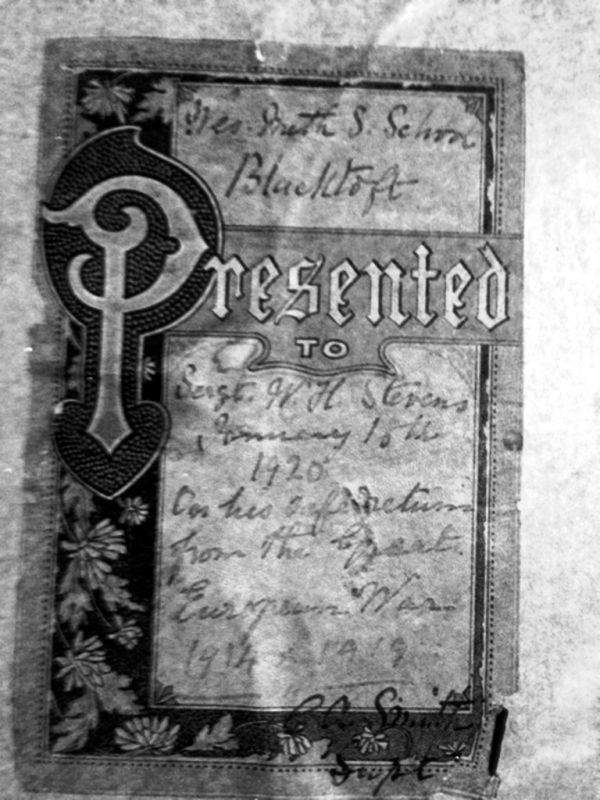 Wes. Meth S. School
Blacktoft
Presented
TO
Sergt. W. H. Stevens
January 15th
1920
On his safe return
from the Great
European War
1914 - 1919
Smith
Supt